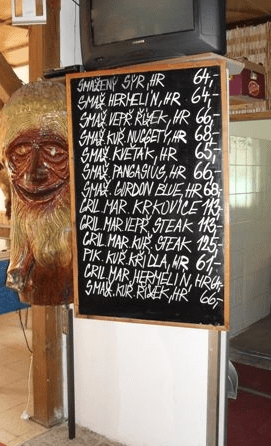 SMAŽENÝ SÝR, HR 64,-
SMAŽ. HERMELÍN, HR 64,-
SMAŽ. VEPŘ. ŘÍZEK, HR 66,-
SMAŽ. KUŘ. NUGGETY, HR 68,-
SMAŽ. KVĚTÁK, HR 65,-
SMAŽ. PANGASIUS, HR 66,-
SMAŽ. GORDON BLUE, HR 68,-
GRIL. MAR. KRKOVICE 113,-
GRIL. MAR. VEPŘ. STEAK 113,-
GRIL. MAR. KUŘ. STEAK 125,-
PIK. KUŘ. KŘÍDLA, HR 61,-
GRIL. MAR. HERMELÍN, HR 64,-
SMAŽ. KUŘ. ŘÍZEK, HR 66,-